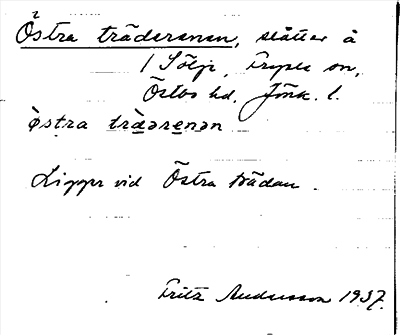 Östra träderenen, slåtter å
1 Sölje, Tryple sn,
Östbo hd, Jönk. l.
østra trädərenən
Ligger vid Östra trädan.
Fritz Andersson 1937.